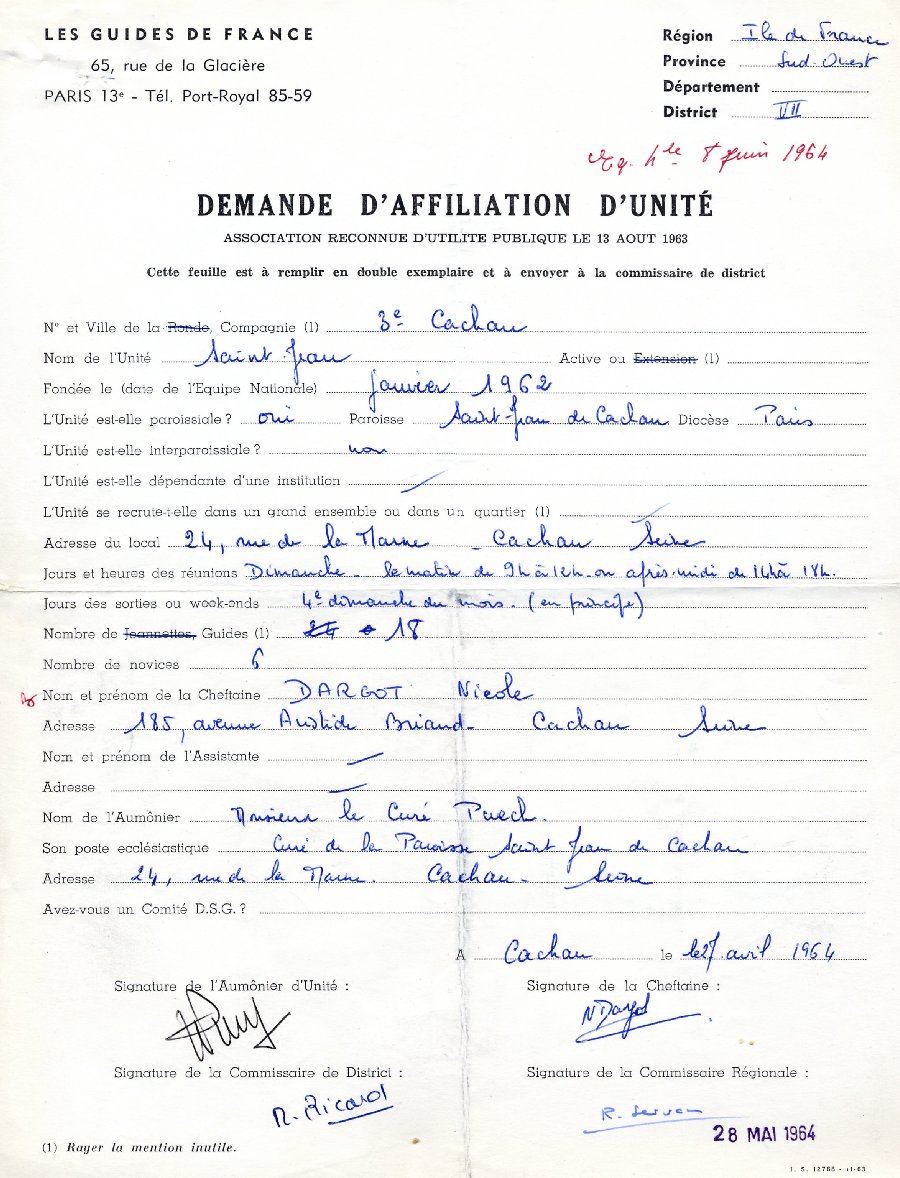 LES GUIDES DE FRANCE
65, rue de la Glacière
PARIS 13e - Tél. Port-Royal 85-59
Région Ile de France
Province Sud-Ouest
Département
District VII
le 8 Juin 1964
DEMANDE D'AFFILIATION D'UNITÉ
ASSOCIATION RECONNUE D'UTILITE PUBLIQUE LE 13 AOUT 1963
Cette feuille est à remplir en double exemplaire et à envoyer à la commissaire de district
N° et Ville de la Ronde, Compagnie (1) 3e Cachan
Nom de l'Unité Saint Jean Active ou Extension (1)
Fondée le (date de l'Equipe Nationale) janvier 1962
L'Unité est-elle paroissiale ? oui Paroisse Saint-Jean de Cachan Diocèse Paris
L'Unité est-elle interparoissiale ? non
L'Unité est-elle dépendante d'une institution
L'Unité se recrute-t-elle dans un grand ensemble ou dans un quartier (1)
Adresse du local 24, rue de la Marne - Cachan Seine
Jours et heures des réunions Dimanche - le matin de 9h à 12h ou après-midi de 14h à 18h.
Jours des sorties ou week-ends 4e dimanche du mois. (en principe)
Nombre de Jeannettes, Guides (1) 24 18
Nombre de novices 6
Nom et prénom de la Cheftaine DARGOT Nicole
Adresse 185, avenue Aristide Briand - Cachan Seine
Nom et prénom de l'Assistante
Adresse
Nom de l'Aumônier Monsieur le Curé Puech.
Son poste ecclésiastique Curé de la Paroisse Saint Jean de Cachan
Adresse 24, rue de la Marne. Cachan - Seine
Avez-vous un Comité D.S.G. ?
A Cachan le le 27 avril 1964
Signature de l'Aumônier d'Unité :
Signature de la Cheftaine :
NDargot
Signature de la Commissaire de District :
Signature de la Commissaire Régionale :
M. Ricard
R. Servan
28 MAI 1964
(1) Rayer la mention inutile.
I. S. 12766 - 11-63